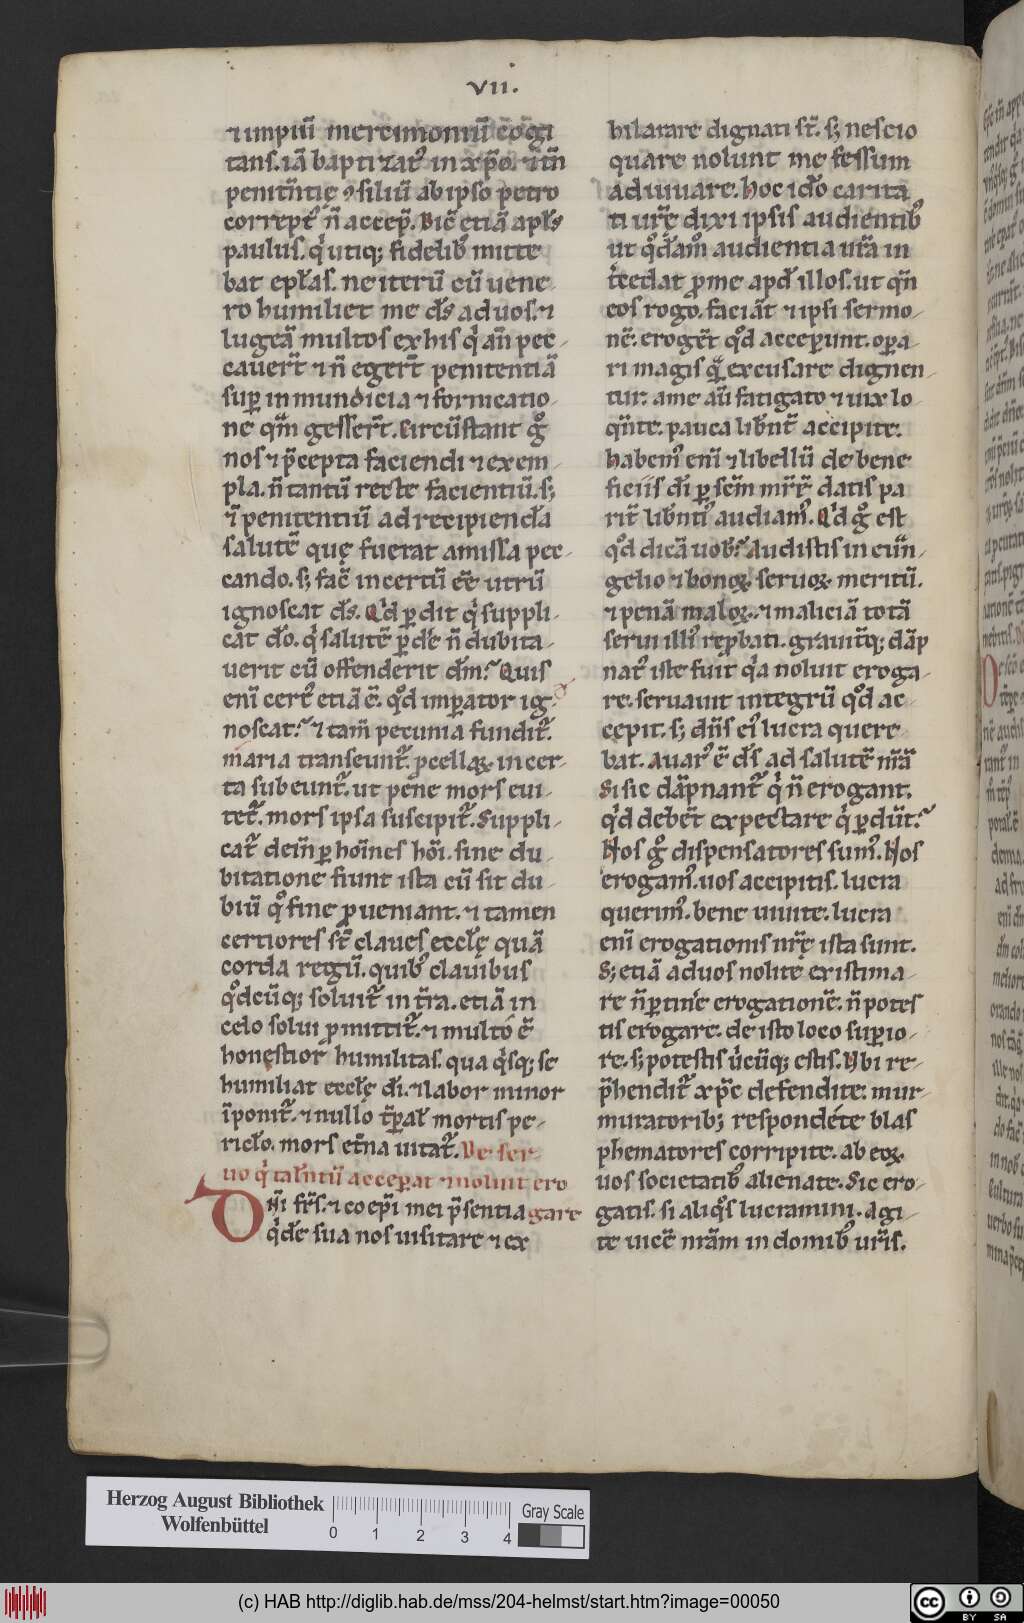 VII.
⁊ impiū mercimoniū cogi
tans. iā baptizatꝰ in xp̄o. ⁊ tn̄
penitn̄tię ꝯsiliū ab ipso petro
correptꝰ n̄ accep̄. Dic̄ etiā apłs
paulus. q̇ utiq; fidelibꝰ mitte
bat epłas. ne iterū cū uene
ro humiliet me ds̄ ad uos. ⁊
lugeā multos ex his q̇ an̄ pec
cauer̄t ⁊ n̄ egerr̄t penitentiā
suꝑ inmundicia ⁊ fornicatio-
ne qm̄ gesser̄t. Circūstant gͦ
nos ⁊ p̄cepta faciendi ⁊ exem-
pla. n̄ tantū recte facientiū. s;
⁊ penitentiū ad recipiendā
salutē quę fuerat amissa pec-
cando. s; fac̄ incertū eē utrū
ignoscat ds̄. Qͥd ꝑdit q̇ suppli-
cat dō. q̇ salutē ꝑde n̄ dubita-
uerit cū offenderit dm̄? Quis
eni certꝰ etiā ē. qͦd imꝑator ig-
noscat? ⁊ tam̄ pecunia fundit᷑.
maria transeunt᷑. ꝓcellaꝝ incer-
ta subeunt᷑. ut pene mors eui-
tet᷑. mors ipsa suscipit᷑. Suppli-
cat᷑ dein̄ ꝑ hoīnes hōi. sine du-
bitatione fiunt ista cū sit du-
biū qͦ fine ꝓueniant. ⁊ tamen
certiores st̄ claues ecclę quā
corda regū. quibꝰ clauibus
qͦdcūq; soluit᷑ in tr̄a. etiā in
celo solui ꝓmittit᷑. ⁊ multo ē
honestior humilitas. qua q̇sq; se
humiliat ecclę di. ⁊ labor minor
īponit᷑. ⁊ nullo tp̄ał mortis pe-
ricło. mors et̄na uitat᷑. De ser
uo q̇ tałntū acceꝑat ⁊ noluit ero
Dn̄i fr̄s. ⁊ coepī mei p̄sentia gare
q̇de sua nos uisitare ⁊ ex
hilarare dignati st̄. s; nescio
quare nolunt me fessum
adiuuare. Hoc ido carita
ti ur̄ę dixi ipsis audientibꝰ
ut qͦdamͦ audientia ur̄ā in
tcedat ꝓ me apd illos. ut qn̄
eos rogo. faciāt ⁊ ipsi sermo-
nē. eroget̄ qͦd acceꝑunt. oꝑa-
ri magis qͣ excusare dignen-
tur. a me aū fatigato ⁊ uix lo
qn̄te. pauca libn̄t᷑ accipite.
Habemꝰ eni ⁊ libellū de bene
ficiis di ꝑ sem̄ mr̄r̄ datis pa
rit᷑ libn̄tiꝰ audiamꝰ. Qͥd gͦ est
qͦd dicā uob? Audistis in euan-
gelio ⁊ bonoꝝ seruoꝝ meritū.
⁊ penā maloꝝ. ⁊ maliciā totā
serui illiꝰ reꝓbati. grauitq; dāp
natꝰ iste fuit qͥa noluit eroga-
re. seruauit integrū qͦd ac-
cepit. s; dn̄s eiꝰ lucra quere
bat. Auarꝰ ē ds̄ ad salutē nr̄ā
Si sic dāpnant᷑ q̇ n̄ erogant.
qͥd debēt expectare q̇ ꝑdūt?
Nos gͦ dispensatores sumꝰ. Nos
erogamꝰ. uos accipitis. lucra
querimꝰ. bene uiuite. lucra
eni erogationis nr̄ę ista sunt.
S; etiā ad uos nolite existima-
re n̄ ꝑtinere erogationē. n̄ potes
tis erogare. de isto loco suꝑio-
re. s; potestis ubicūq; estis. Ubi re-
p̄hendit᷑ xp̄c defendite: mur-
muratorib; respondete blas
phematores corripite. ab eoꝝ
uos societatibꝰ alienate. Sic ero-
gatis. si aliqͦs lucramini. Agi-
te uicē nr̄am in domibꝰ ur̄is.
Herzog August Bibliothek
Wolfenbüttel
0 1 2 3 4
Gray Scale
(c) HAB http://diglib.hab.de/mss/204-helmst/start.htm?image=00050
cc BY SA